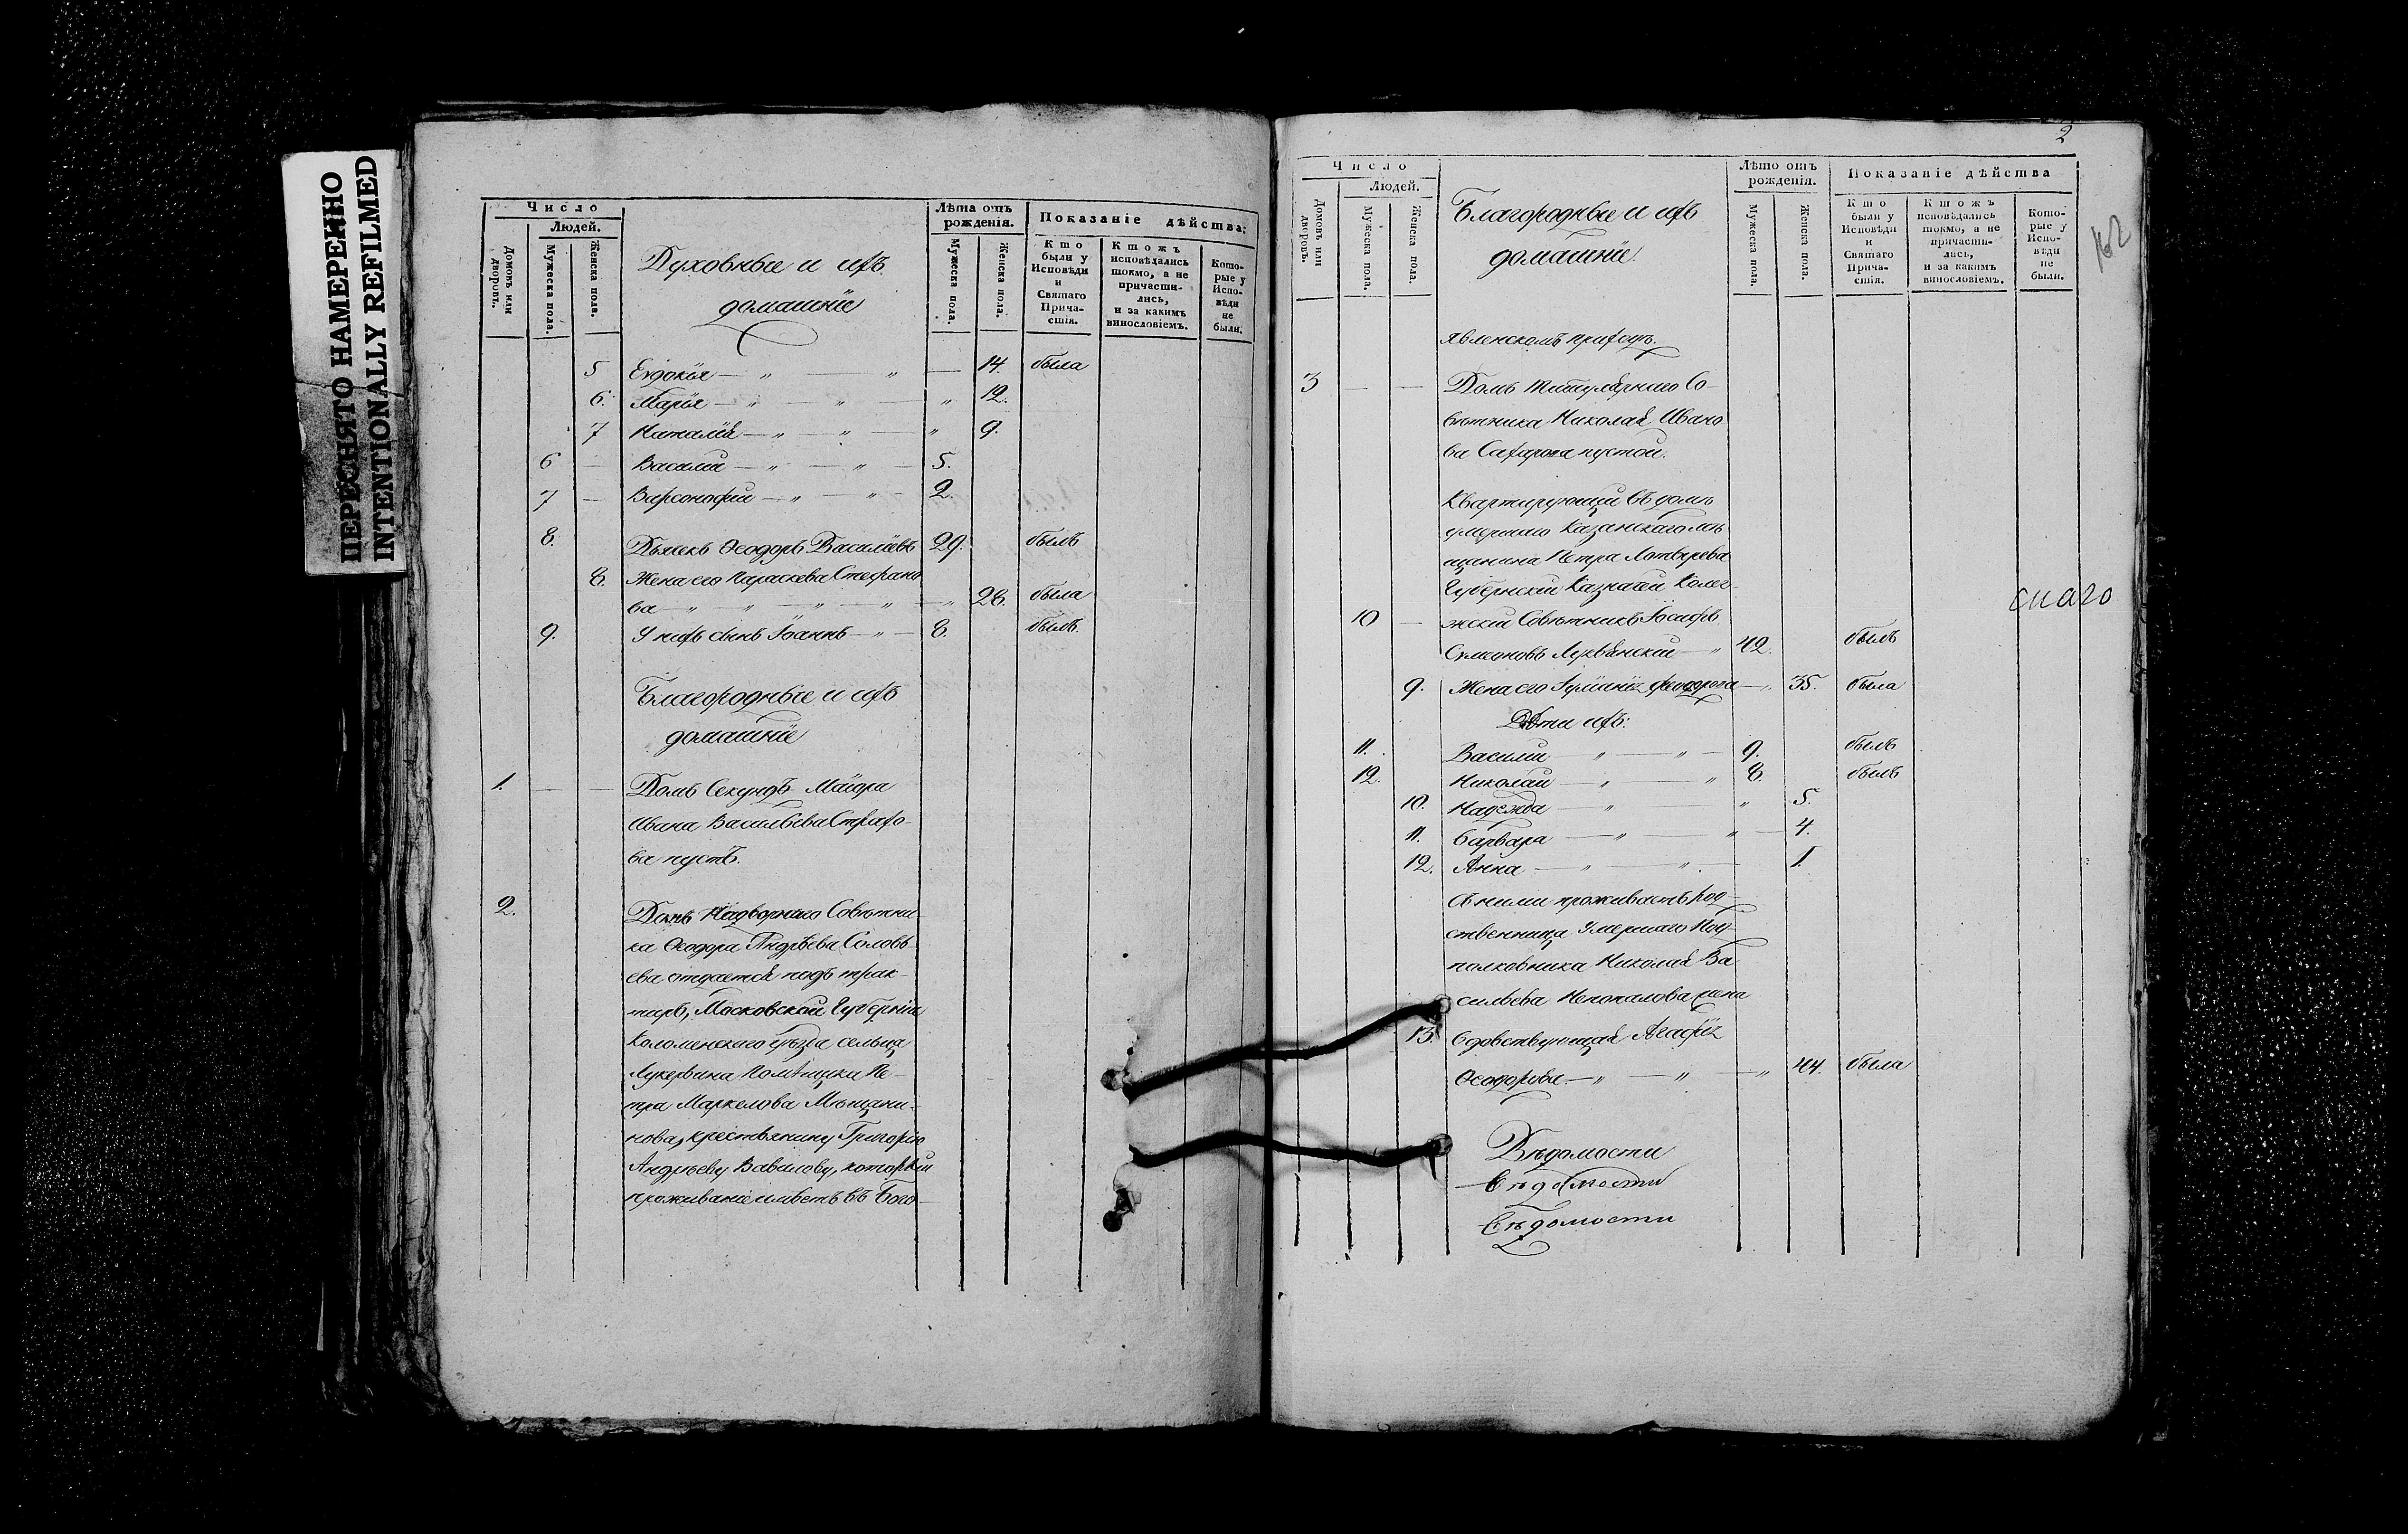 ПЕРЕСНЯТО НАМЕРЕННО
INTENTIONALLY REFILMED
Число
Людей.
Домовъ или дворовъ.
Мужеска пола.
Женска пола.
Духовные и ихъ
домашніе
Лѣта отъ рожденія.
Мужеска пола.
Женска пола.
Показаніе дѣйства:
Кто были у Исповѣди и Святаго Прича-стія.
Ктожъ исповѣдались токмо, а не причасти-лись, и за какимъ винословіемъ.
Кото-рые у Испо-вѣди не были.
5 Евдокія — „ — „ — 14. была
6. Марія — „ — „ — „ 12.
7 Наталія — „ — „ — „ 9.
6 — Василій — „ — „ — 5.
7 — Варсонофій — „ — „ — 2.
8. Дьячекъ Ѳеодоръ Василіевъ 29. былъ
8. Жена его Параскева Стефано
ва — „ — „ — „ — „ — „ 28. была
9. У нихъ сынъ Іоаннъ — „ — 8. былъ.
Благородные и ихъ
домашніе
1. — — Домъ Секундъ Маіора
Ивана Васильева Страхо-
ва пустъ.
2. Домъ Надворнаго Совѣтни-
ка Ѳеодора Андрѣева Соловь-
ева отдается подъ трак-
тиръ, Московской Губерніи
Коломенскаго уѣзда сельца
Лукерьина Помѣщика Пе-
тра Маркелова Мѣщани-
нова, крестьянину Григорію
Андрѣеву Вавилову, который
проживаніе имѣетъ въ Бого-
2
162
Число
Людей.
Домовъ или дворовъ.
Мужеска пола.
Женска пола.
Благородные и ихъ
домашніе
Лѣто отъ рожденія.
Мужеска пола.
Женска пола.
Показаніе дѣйства
Кто были у Исповѣди и Святаго Прича-стія.
Ктожъ исповѣдались токмо, а не причасти-лись, и за какимъ винословіемъ.
Кото-рые у Испо-вѣди не были.
явленскомъ приходѣ.
3 — — Домъ Титулярнаго Со-
вѣтника Николая Ивано
ва Сахарова пустой.
Квартирующій въ домѣ
умершаго Казанскаго мѣ
щанина Петра Котырева
Губернскій Казначей Колле-
10 — жскій Совѣтникъ Іосифъ
Сѵмеоновъ 42. былъ
9. Жена его Іуліанія Феодорова — „ 35. была
Дѣти ихъ:
11. Василій — „ — „ — 9. былъ
12. Николай — „ — „ 8. былъ
10. Надежда — „ — „ 5.
11. Варвара — „ — „ — 4.
12. Анна — „ — „ — 1.
Съ ними проживаетъ Род-
ственница Умершаго Под-
полковника Николая Ва
сильева жена
13. вдовствующая Агафія
Ѳеодорова — „ — „ — „ 44. была
скаго
Вѣдомости
Вѣдомости
Вѣдомости